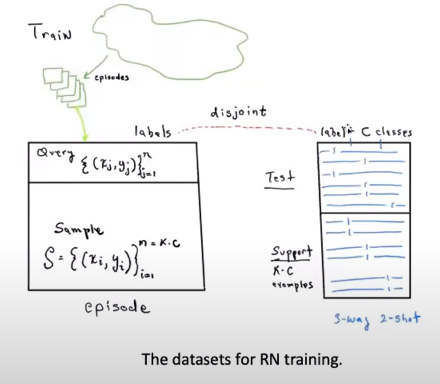 Train
episodes
disjoint
labels
labels C classes
Query {(xj,yj)}ⁿj=1
Test
Sample
S = {(xi, yi)}ᵐ⁼ᴷ·ᶜi=1
Support
K·C
examples
episode
3-way 2-shot
The datasets for RN training.